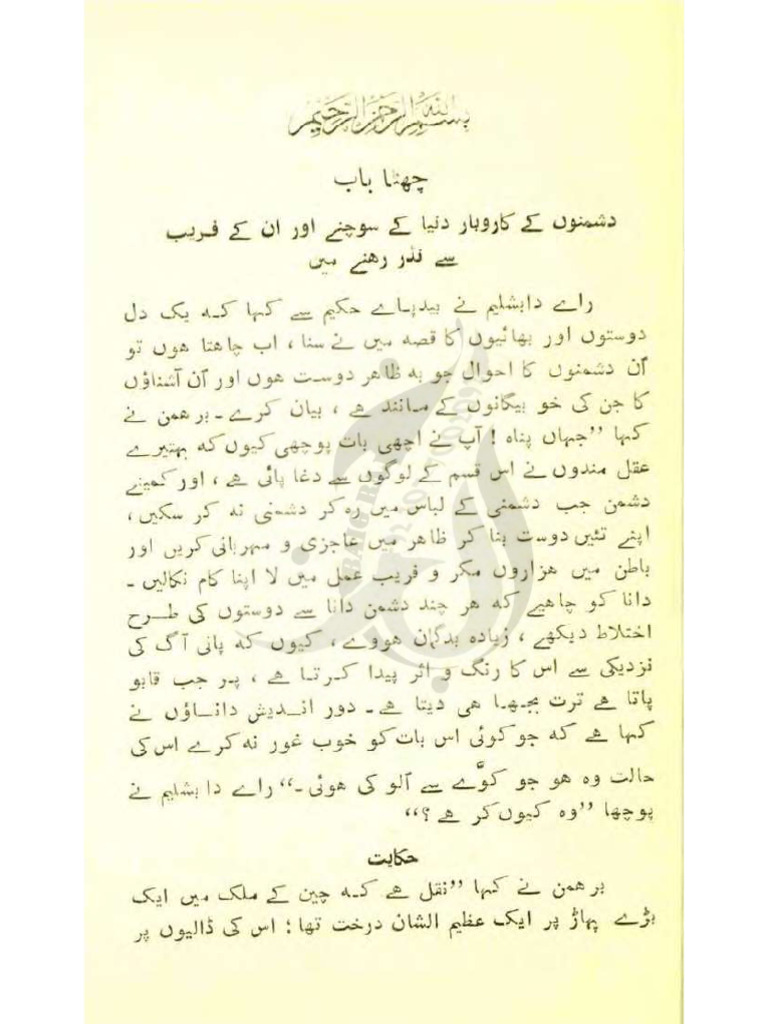 بسم اللہ الرحمن الرحیم
چھٹا باب
دشمنوں کے کاروبار دنیا کے سوچنے اور ان کے فریب
سے نڈر رہنے میں
راے دابشلیم نے بیدپاے حکیم سے کہا کہ یک دل
دوستوں اور بھائیوں کا قصہ میں نے سنا ، اب چاہتا ہوں تو
اُن دشمنوں کا احوال جو بہ ظاہر دوست ہوں اور اُن آشناؤں
کا جن کی خو بیگانوں کے مانند ہے ، بیان کرے ۔ برہمن نے
کہا ”جہاں پناہ ! آپ نے اچھی بات پوچھی کیوں کہ بہتیرے
عقل مندوں نے اس قسم کے لوگوں سے دغا پائی ہے ، اور کمینے
دشمن جب دشمنی کے لباس میں رہ کر دشمنی نہ کر سکیں ،
اپنے تئیں دوست بنا کر ظاہر میں عاجزی و مہربانی کریں اور
باطن میں ہزاروں مکر و فریب عمل میں لا اپنا کام نکالیں ۔
دانا کو چاہیے کہ ہر چند دشمن دانا سے دوستوں کی طرح
اختلاط دیکھے ، زیادہ بدگمان ہووے ، کیوں کہ پانی آگ کی
نزدیکی سے اس کا رنگ و اثر پیدا کرتا ہے ، پر جب قابو
پاتا ہے ترت بجھا ہی دیتا ہے ۔ دور اندیش داناؤں نے
کہا ہے کہ جو کوئی اس بات کو خوب غور نہ کرے اس کی
حالت وہ ہو جو کوّے سے اُلو کی ہوئی ۔“ راے دابشلیم نے
پوچھا ”وہ کیوں کر ہے ؟“
حکایت
برہمن نے کہا ”نقل ہے کہ چین کے ملک میں ایک
بڑے پہاڑ پر ایک عظیم الشان درخت تھا ؛ اس کی ڈالیوں پر